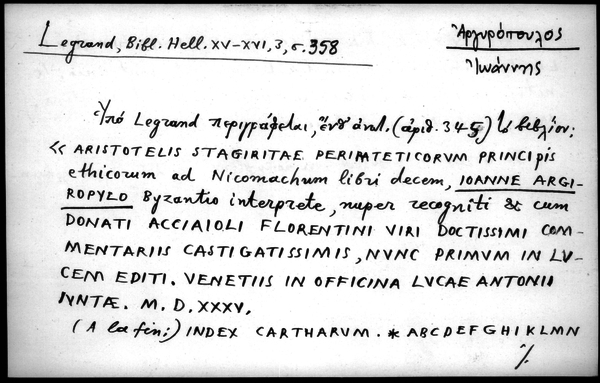 Legrand, Bibl. Hell. XV–XVI, 3, σ. 358
Ἀργυρόπουλος
Ἰωάννης
Ὑπό Legrand περιγράφεται, (ἀριθ. 345) τό βιβλίον:
« ARISTOTELIS STAGIRITAE PERIPATETICORVM PRINCIPIS
ethicorum ad Nicomachum libri decem, IOANNE ARGI-
ROPYLO Byzantio interprete, nuper recogniti & cum
DONATI ACCIAIOLI FLORENTINI VIRI DOCTISSIMI COM-
MENTARIIS CASTIGATISSIMIS, NVNC PRIMVM IN LV-
CEM EDITI. VENETIIS IN OFFICINA LVCAE ANTONII
IVNTÆ. M. D. XXXV.
(A la fin:) INDEX CARTHARVM. * ABCDEFGHIKLMN
./.